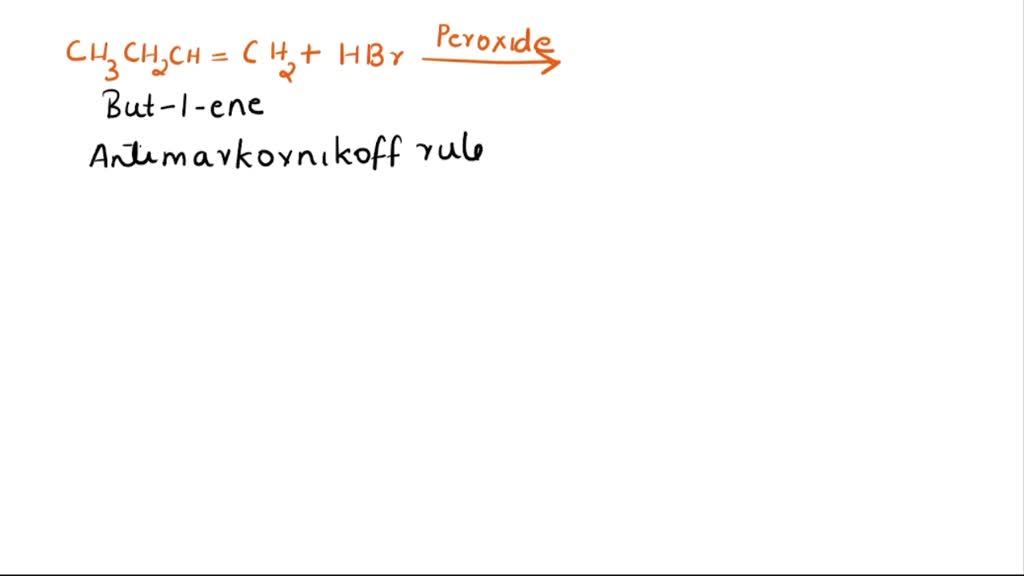 CH₃CH₂CH = CH₂ + HBr Peroxide →
But-1-ene
Antimarkovnikoff rule